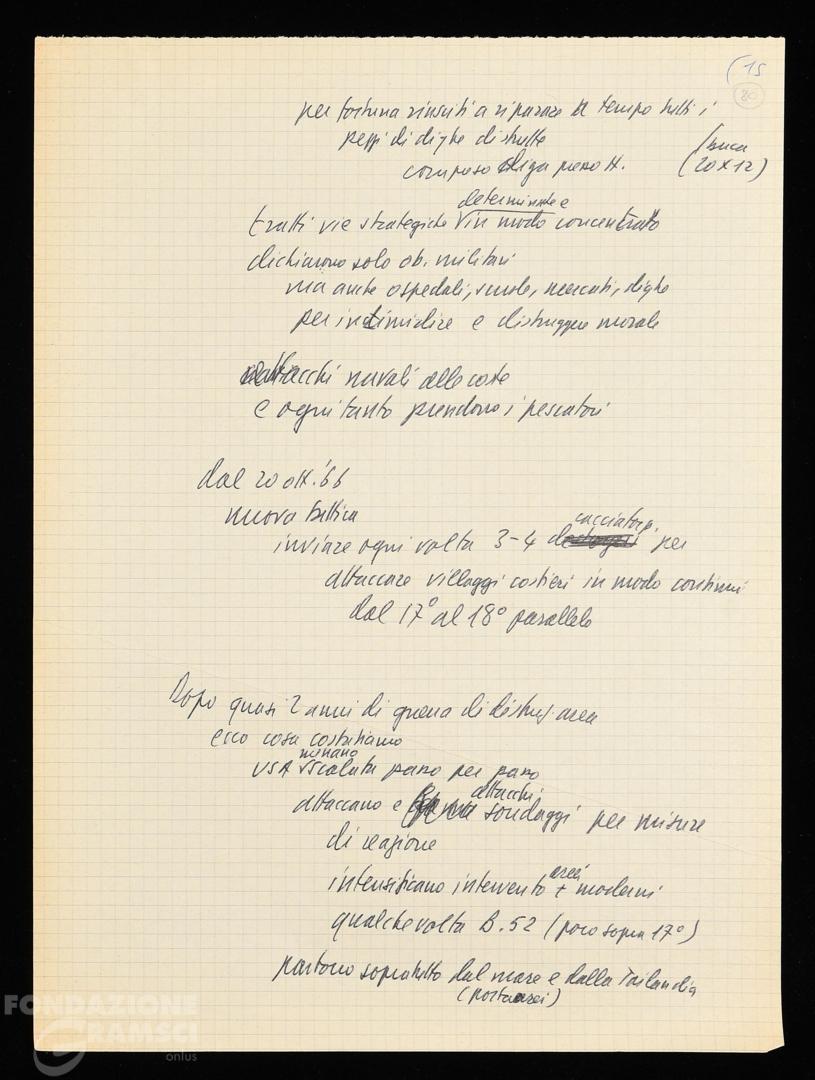 (15
20
per fortuna riusciti a riparare a tempo tutti i
pezzi di dighe distrutte
compreso diga presso H. (buca
(20x12)
determinate e
tratti vie strategiche in modo concentrato
dichiarano solo ob. militari
ma anche ospedali, scuole, mercati, dighe
per intimidire e distruggere morale
attacchi navali alle coste
e ogni tanto prendono i pescatori
dal 20 ott. '66
nuova tattica
cacciatorp.
inviare ogni volta 3-4 per
attaccare villaggi costieri in modo continuo
dal 17° al 18° parallelo
Dopo quasi 2 anni di guerra di distruz. aerea
ecco cosa constatiamo
USA scalata passo per passo
attacchi
attaccano e sondaggi per misure
di reazione
aerei
intensificano intervento + moderni
qualche volta B.52 (poco sopra 17°)
partono sopratutto dal mare e dalla Tailandia
(portaerei)
FONDAZIONE
GRAMSCI
onlus